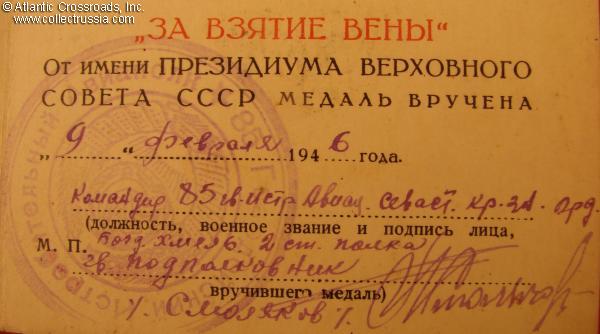 © Atlantic Crossroads, Inc.
www.collectrussia.com
„ЗА ВЗЯТИЕ ВЕНЫ“
От имени ПРЕЗИДИУМА ВЕРХОВНОГО
СОВЕТА СССР МЕДАЛЬ ВРУЧЕНА
„9“ февраля 1946 года.
Командир 85 гв. истр. Авиац. Севаст. кр-зн. Орд.
(должность, военное звание и подпись лица,
М. П. Богд. Хмел. 2 ст. полка
гв. подполковник
вручившего медаль)
/. Смоляков /.